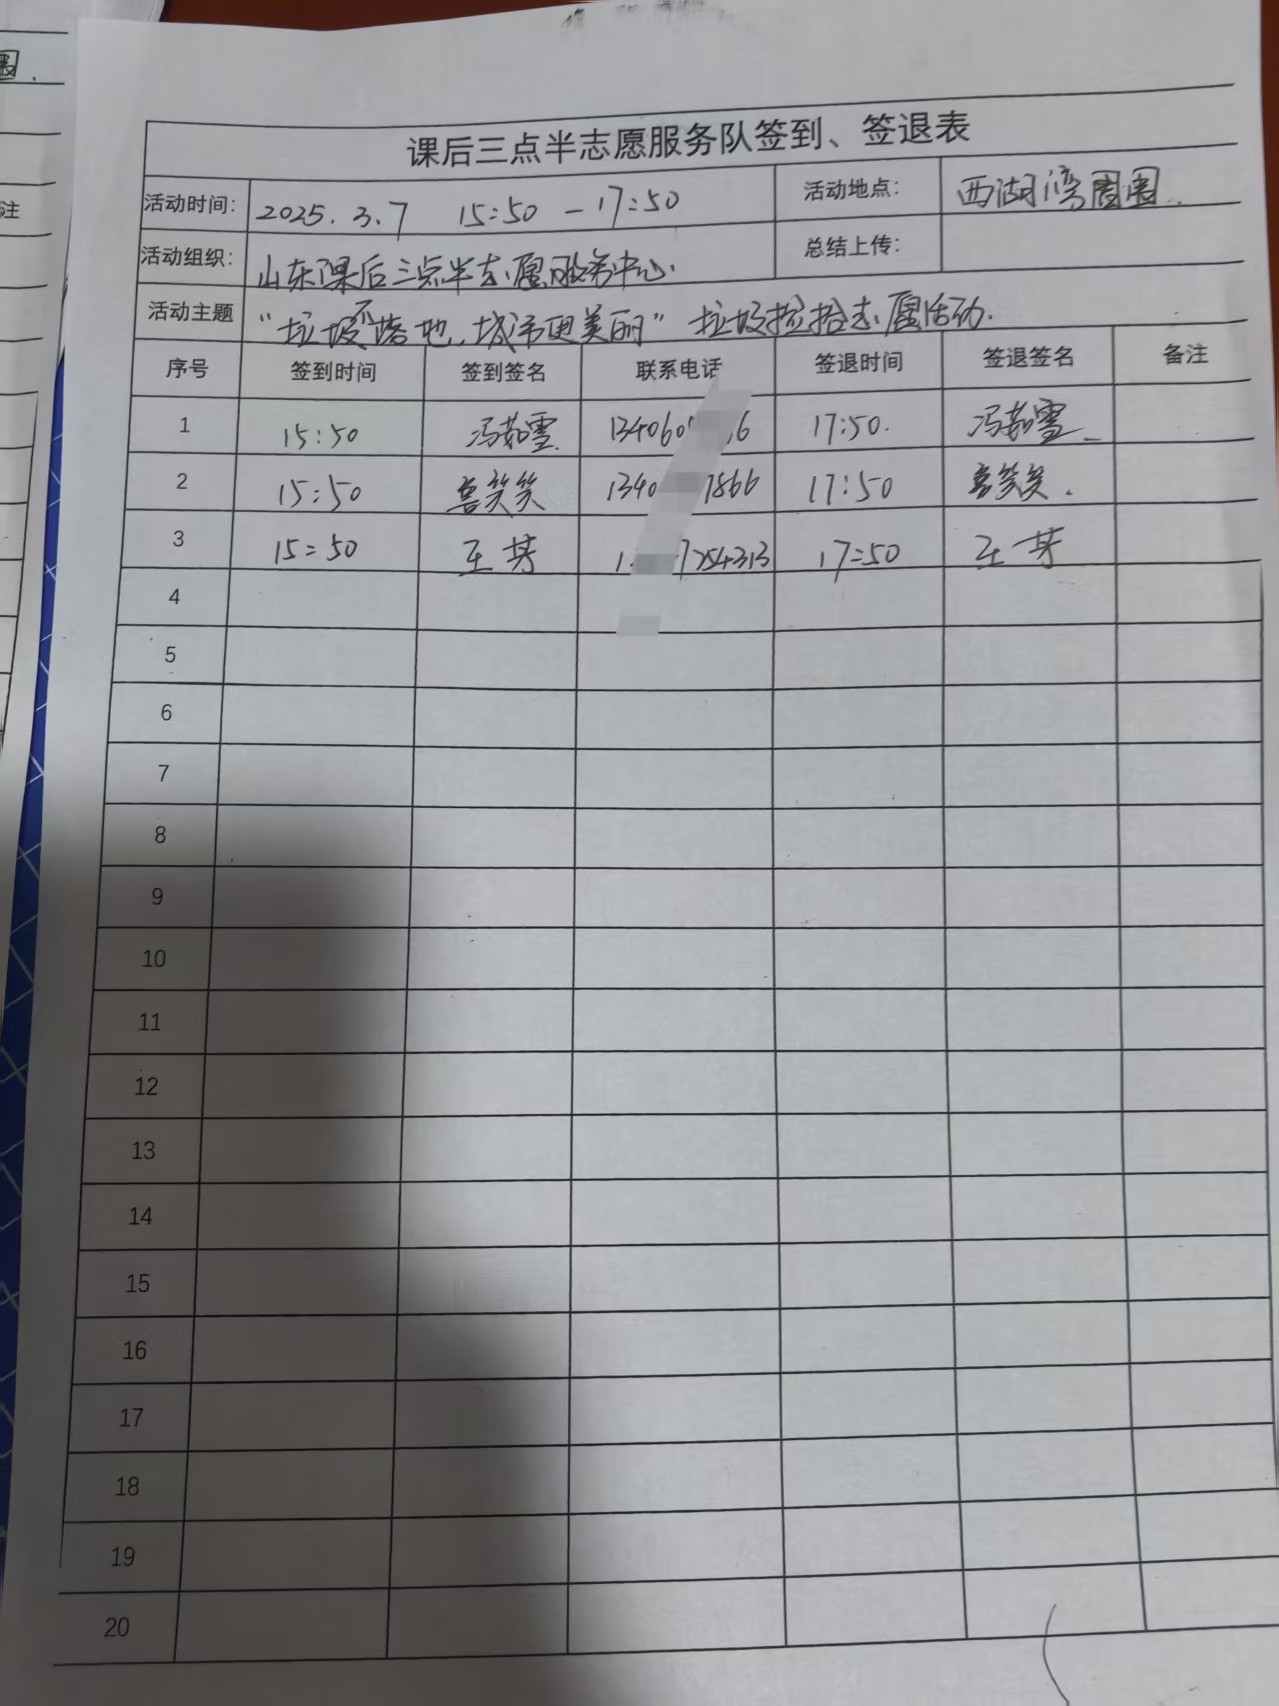 课后三点半志愿服务队签到、签退表
活动时间: 2025.3.7 15:50-17:50 活动地点: 西湖湾周围.
活动组织: 山东课后三点半志愿服务中心. 总结上传:
活动主题 “垃圾不落地,城市更美丽”垃圾捡拾志愿活动.
序号 签到时间 签到签名 联系电话 签退时间 签退签名 备注
1 15:50 冯茹雪. 134060 6 17:50. 冯茹雪.
2 15:50 笑笑 1340 1866 17:50 笑笑.
3 15:50 王芳 1 7254313 17:50 王芳
4
5
6
7
8
9
10
11
12
13
14
15
16
17
18
19
20
注